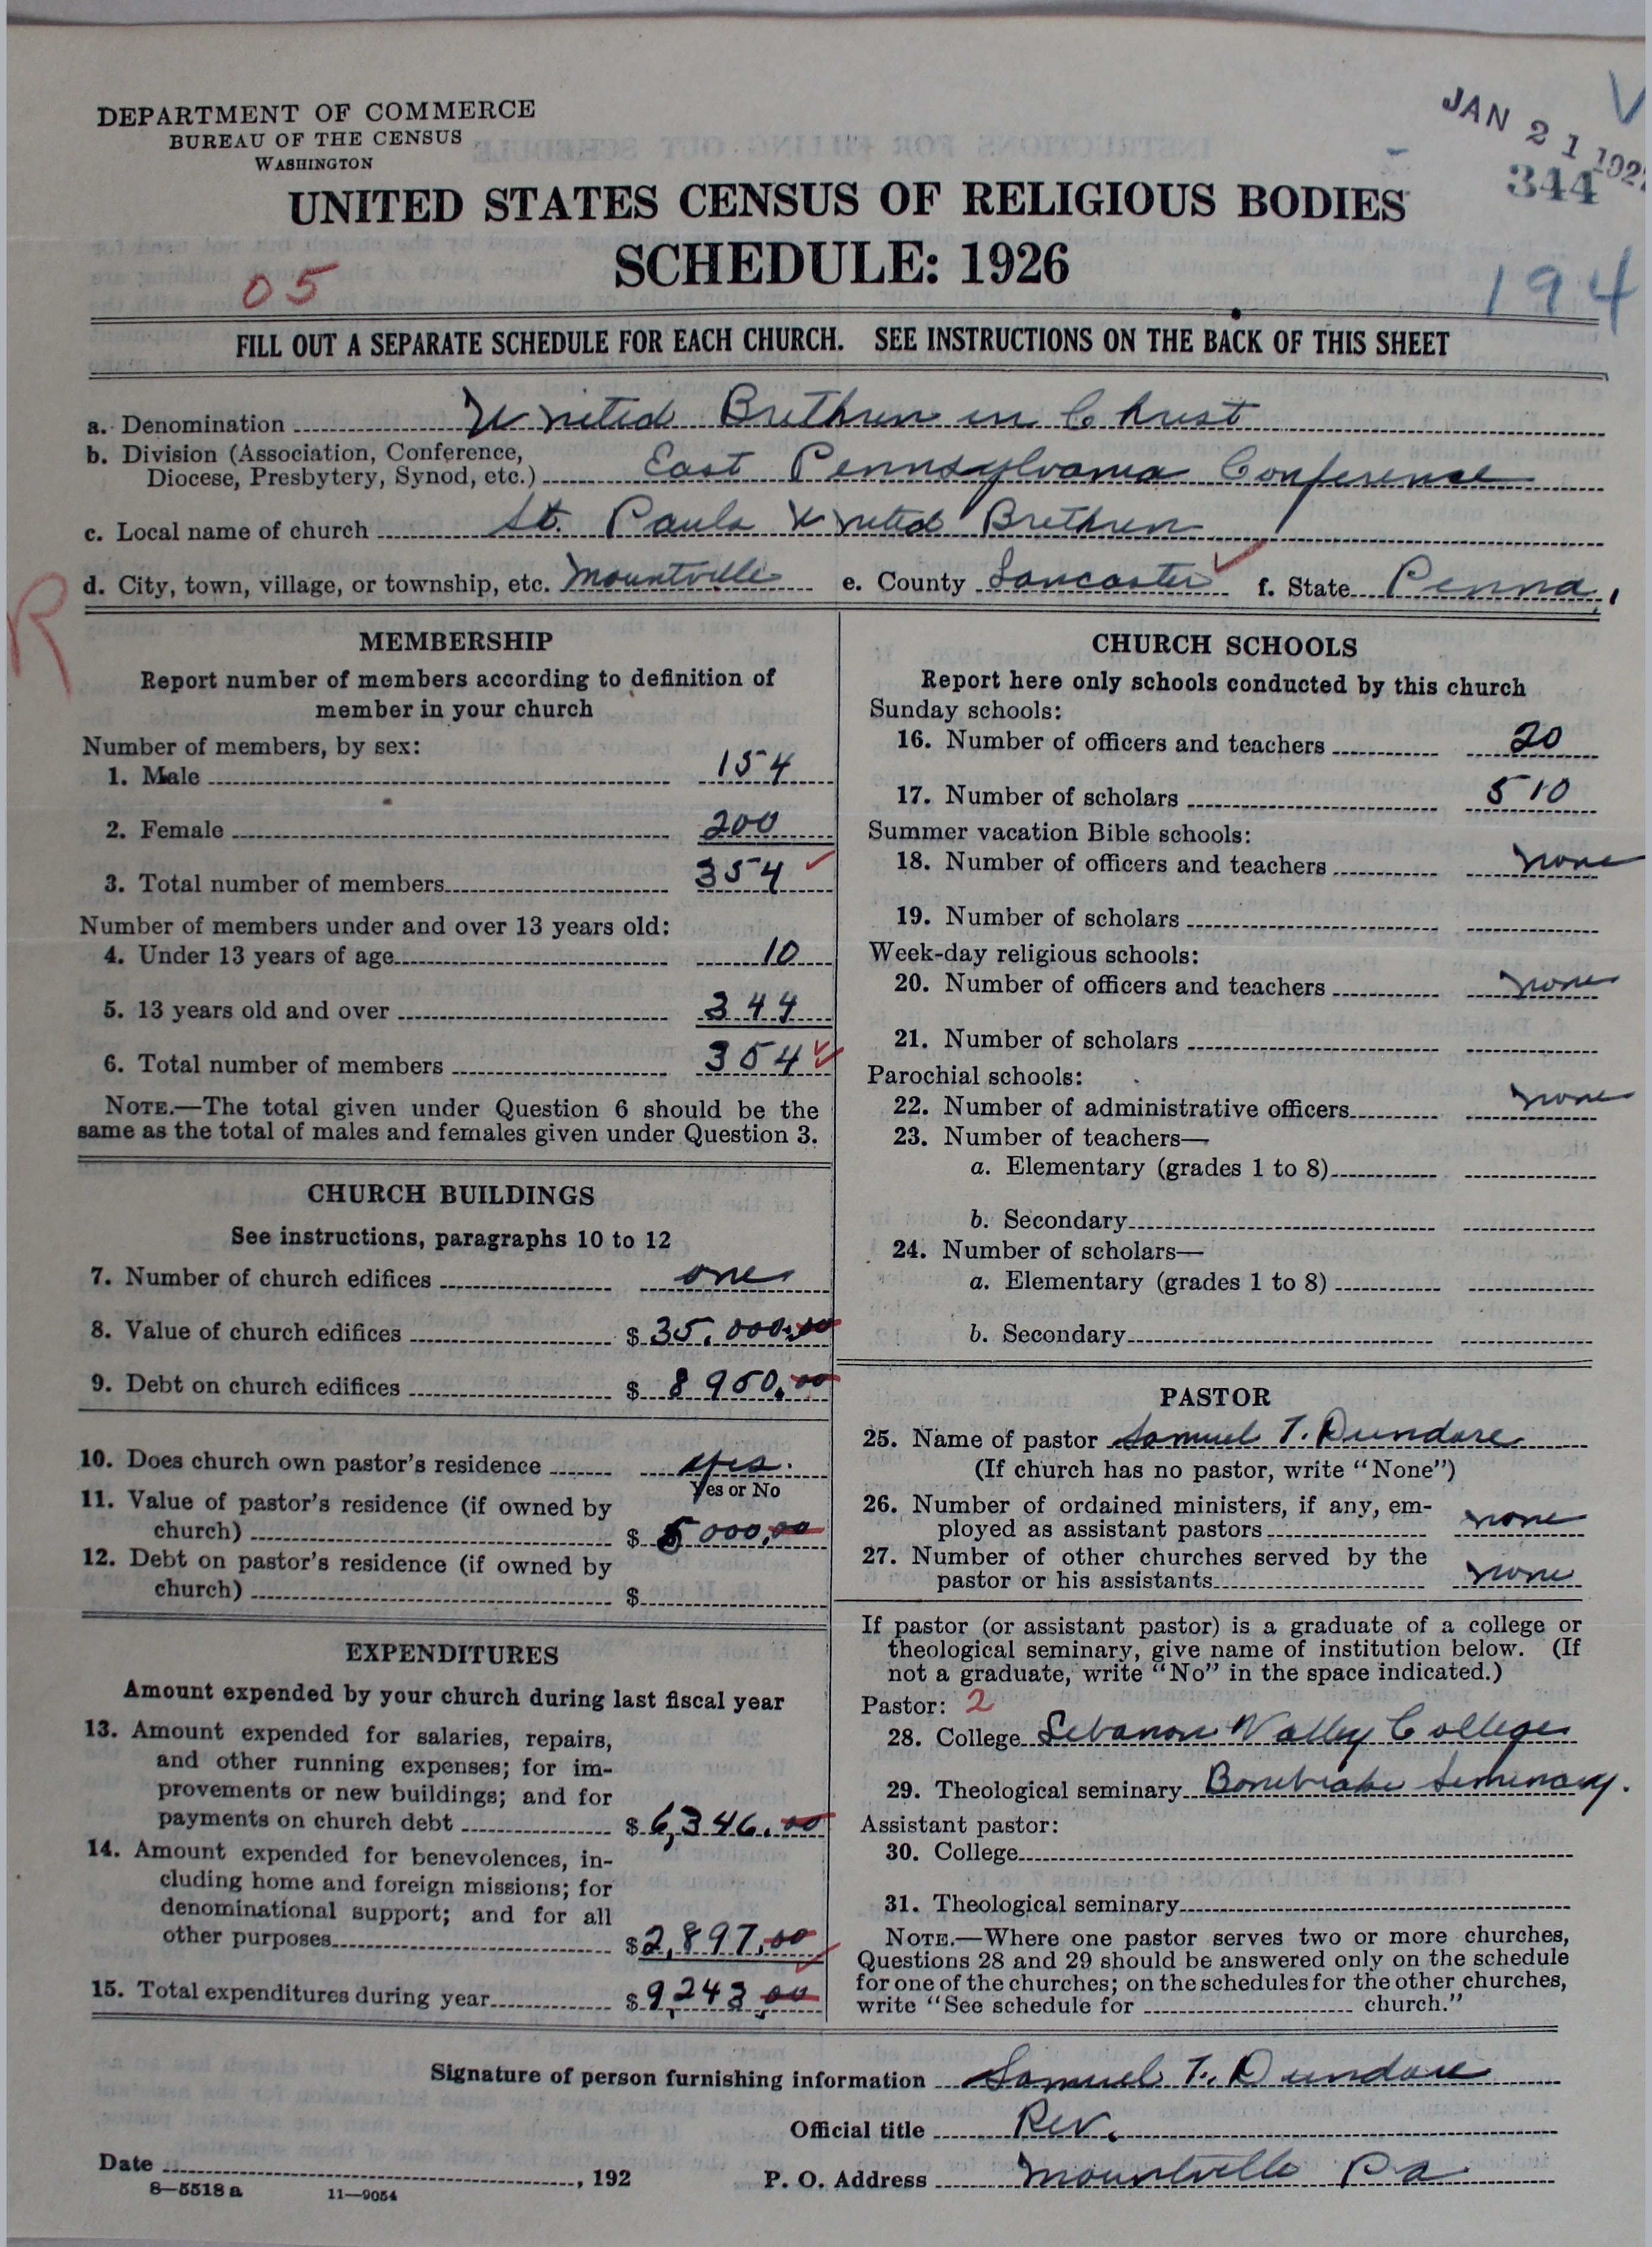 DEPARTMENT OF COMMERCE
BUREAU OF THE CENSUS
WASHINGTON
JAN 21 192
344
UNITED STATES CENSUS OF RELIGIOUS BODIES
SCHEDULE: 1926
05
194
FILL OUT A SEPARATE SCHEDULE FOR EACH CHURCH. SEE INSTRUCTIONS ON THE BACK OF THIS SHEET
a. Denomination United Brethren in Christ
b. Division (Association, Conference,
Diocese, Presbytery, Synod, etc.) East Pennsylvania Conference
c. Local name of church St. Pauls United Brethren
d. City, town, village, or township, etc. Mountville e. County Lancaster f. State Penna.
R
MEMBERSHIP
Report number of members according to definition of
member in your church
Number of members, by sex:
1. Male 154
2. Female 200
3. Total number of members 354
Number of members under and over 13 years old:
4. Under 13 years of age 10
5. 13 years old and over 344
6. Total number of members 354
NOTE.—The total given under Question 6 should be the
same as the total of males and females given under Question 3.
CHURCH BUILDINGS
See instructions, paragraphs 10 to 12
7. Number of church edifices one
8. Value of church edifices $35,000.00
9. Debt on church edifices $8950.00
10. Does church own pastor's residence yes.
Yes or No
11. Value of pastor's residence (if owned by
church) $5000.00
12. Debt on pastor's residence (if owned by
church) $
EXPENDITURES
Amount expended by your church during last fiscal year
13. Amount expended for salaries, repairs,
and other running expenses; for im-
provements or new buildings; and for
payments on church debt $6,346.00
14. Amount expended for benevolences, in-
cluding home and foreign missions; for
denominational support; and for all
other purposes $2,897.00
15. Total expenditures during year $9,243.00
CHURCH SCHOOLS
Report here only schools conducted by this church
Sunday schools:
16. Number of officers and teachers 20
17. Number of scholars 510
Summer vacation Bible schools:
18. Number of officers and teachers none
19. Number of scholars
Week-day religious schools:
20. Number of officers and teachers none
21. Number of scholars
Parochial schools:
22. Number of administrative officers none
23. Number of teachers—
a. Elementary (grades 1 to 8)
b. Secondary
24. Number of scholars—
a. Elementary (grades 1 to 8)
b. Secondary
PASTOR
25. Name of pastor Samuel T. Dundore
(If church has no pastor, write "None")
26. Number of ordained ministers, if any, em-
ployed as assistant pastors none
27. Number of other churches served by the
pastor or his assistants none
If pastor (or assistant pastor) is a graduate of a college or
theological seminary, give name of institution below. (If
not a graduate, write "No" in the space indicated.)
Pastor: 2
28. College Lebanon Valley College
29. Theological seminary Bonebrake Seminary.
Assistant pastor:
30. College
31. Theological seminary
NOTE.—Where one pastor serves two or more churches,
Questions 28 and 29 should be answered only on the schedule
for one of the churches; on the schedules for the other churches,
write "See schedule for church."
Signature of person furnishing information Samuel T. Dundore
Official title Rev.
Date , 192 P. O. Address Mountville Pa
8—5518 a 11—9054